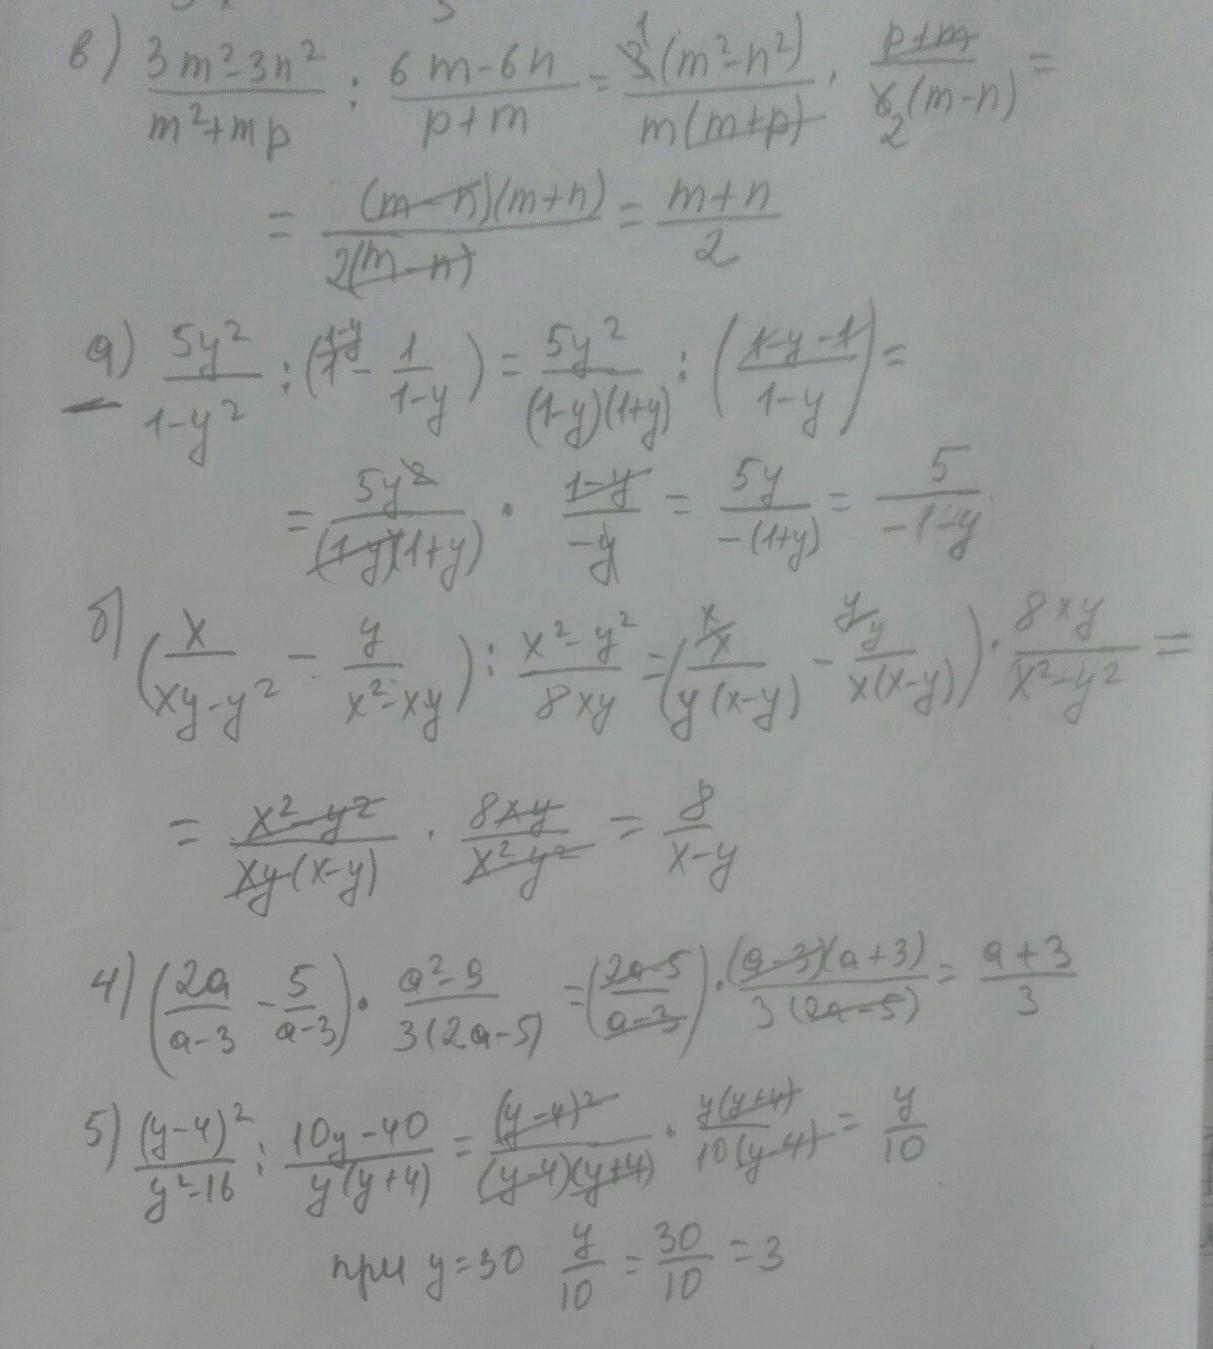 в) (3m²-3n²)/(m²+mp) : (6m-6n)/(p+m) = 3(m²-n²)/(m(m+p)) · (p+m)/(6(m-n)) =
= (m-n)(m+n)/(2(m-n)) = (m+n)/2
а) 5y²/(1-y²) : (1 - 1/(1-y)) = 5y²/((1-y)(1+y)) : ((1-y-1)/(1-y)) =
= 5y²/((1-y)(1+y)) · (1-y)/(-y) = 5y/(-(1+y)) = 5/(-1-y)
б) (x/(xy-y²) - y/(x²-xy)) : (x²-y²)/(8xy) = (x/(y(x-y)) - y/(x(x-y))) · 8xy/(x²-y²) =
= (x²-y²)/(xy(x-y)) · 8xy/(x²-y²) = 8/(x-y)
4) (2a/(a-3) - 5/(a-3)) · (a²-9)/(3(2a-5)) = ((2a-5)/(a-3)) · (a-3)(a+3)/(3(2a-5)) = (a+3)/3
5) (y-4)²/(y²-16) : (10y-40)/(y(y+4)) = (y-4)²/((y-4)(y+4)) · y(y+4)/(10(y-4)) = y/10
при y=30 y/10 = 30/10 = 3